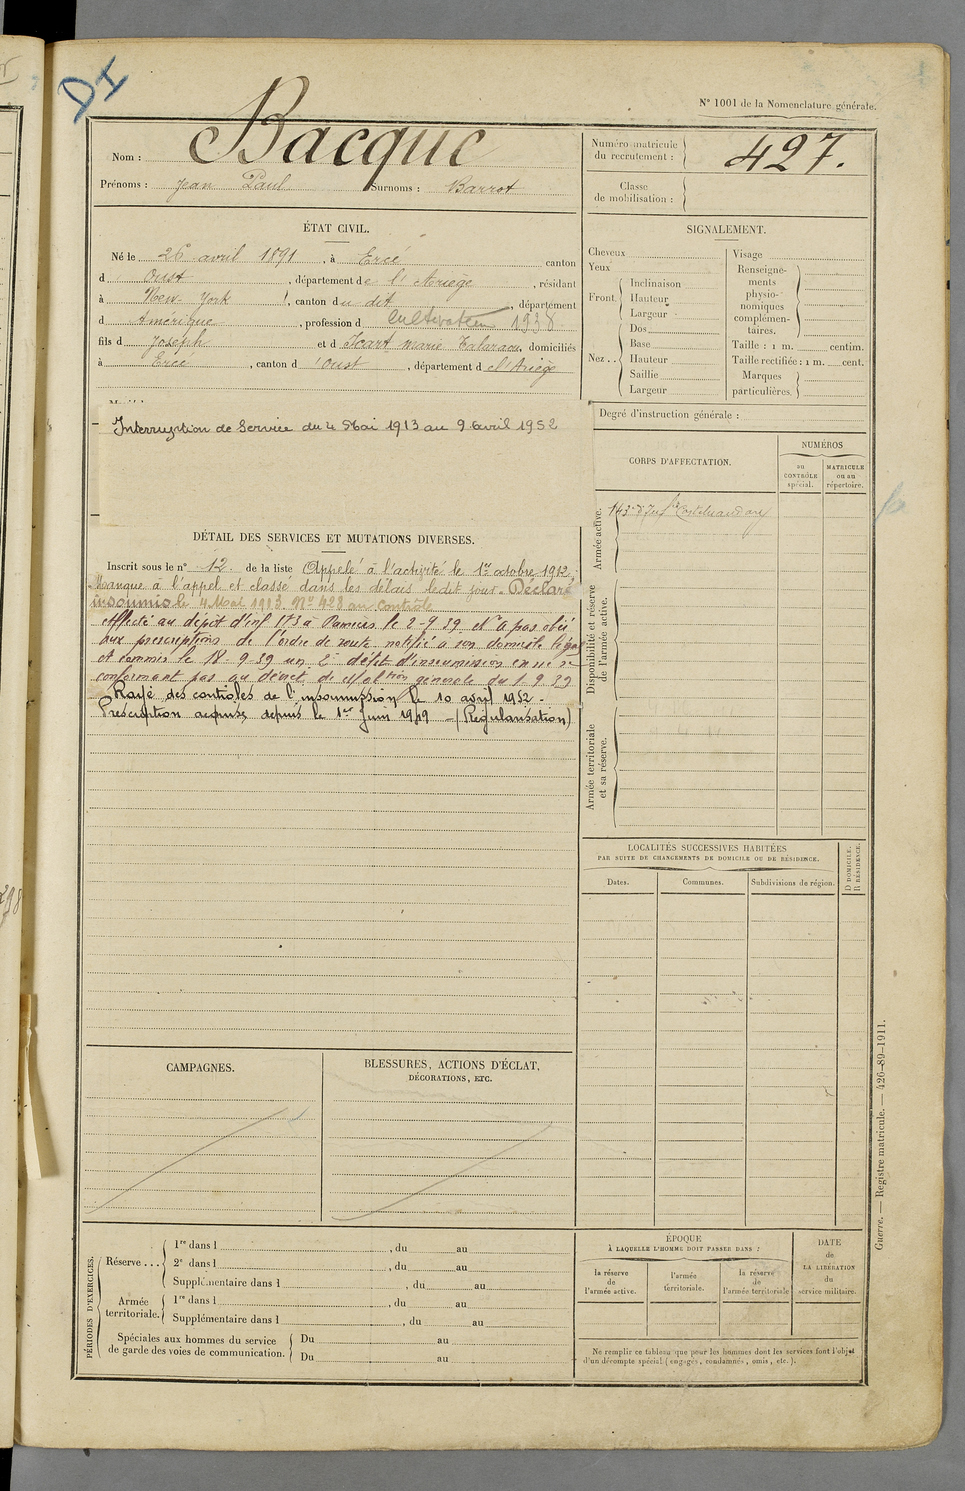 DI
N° 1001 de la Nomenclature générale.
Nom : Bacque
Prénoms : Jean Paul Surnoms : Barrot
Numéro matricule du recrutement : 427.
Classe de mobilisation :
ÉTAT CIVIL.
Né le 26 avril 1891, à Ercé canton
d Oust, département de l'Ariège, résidant
à New-York, canton du dit, département
d Amérique, profession d Cultivateur 1938
fils d Joseph et d Icart marie, domiciliés
à Ercé, canton d'Oust, département de l'Ariège
Interruption de Service du 4 Mai 1913 au 9 avril 1952
DÉTAIL DES SERVICES ET MUTATIONS DIVERSES.
Inscrit sous le n° 12 de la liste Appelé à l'activité le 1er octobre 1912,
Manque à l'appel et classé dans les délais ledit jour. Déclaré
insoumis le 4 Mai 1913 N° 428 au controle
Affecté au dépôt d'inf 173 à Pamiers le 2-9-39. N'a pas obéi
aux prescriptions de l'ordre de route notifié à son domicile légal
et commis le 18-9-39 un 2e délit d'insoumission en ne se
conformant pas au décret de Mobtion générale du 1.9.39
Rayé des controles de l'insoumission le 10 avril 1952 -
Prescription acquise depuis le 1er Juin 1949 - (Régularisation)
SIGNALEMENT.
Cheveux
Yeux
Front. Inclinaison
Hauteur
Largeur
Nez.. Dos
Base
Hauteur
Saillie
Largeur
Visage
Renseignements physionomiques complémentaires.
Taille : 1 m. centim.
Taille rectifiée : 1 m. cent.
Marques particulières.
Degré d'instruction générale :
CORPS D'AFFECTATION.
NUMÉROS
au CONTRÔLE spécial.
MATRICULE ou au répertoire.
Armée active.
143e d'Infie Castelnaudary
Disponibilité et réserve de l'armée active.
Armée territoriale et sa réserve.
LOCALITÉS SUCCESSIVES HABITÉES
PAR SUITE DE CHANGEMENTS DE DOMICILE OU DE RÉSIDENCE.
Dates.
Communes.
Subdivisions de région.
D DOMICILE.
R RÉSIDENCE.
CAMPAGNES.
BLESSURES, ACTIONS D'ÉCLAT,
DÉCORATIONS, ETC.
PÉRIODES D'EXERCICES.
Réserve... 1re dans l , du au
2e dans l , du au
Supplémentaire dans l , du au
Armée territoriale. 1re dans l , du au
Supplémentaire dans l , du au
Spéciales aux hommes du service
de garde des voies de communication. Du au
Du au
ÉPOQUE
À LAQUELLE L'HOMME DOIT PASSER DANS :
la réserve de l'armée active.
l'armée territoriale.
la réserve de l'armée territoriale
DATE de LA LIBÉRATION du service militaire.
Ne remplir ce tableau que pour les hommes dont les services font l'objet
d'un décompte spécial (engagés, condamnés, omis, etc.).
Guerre. — Registre matricule. — 426-89-1911.